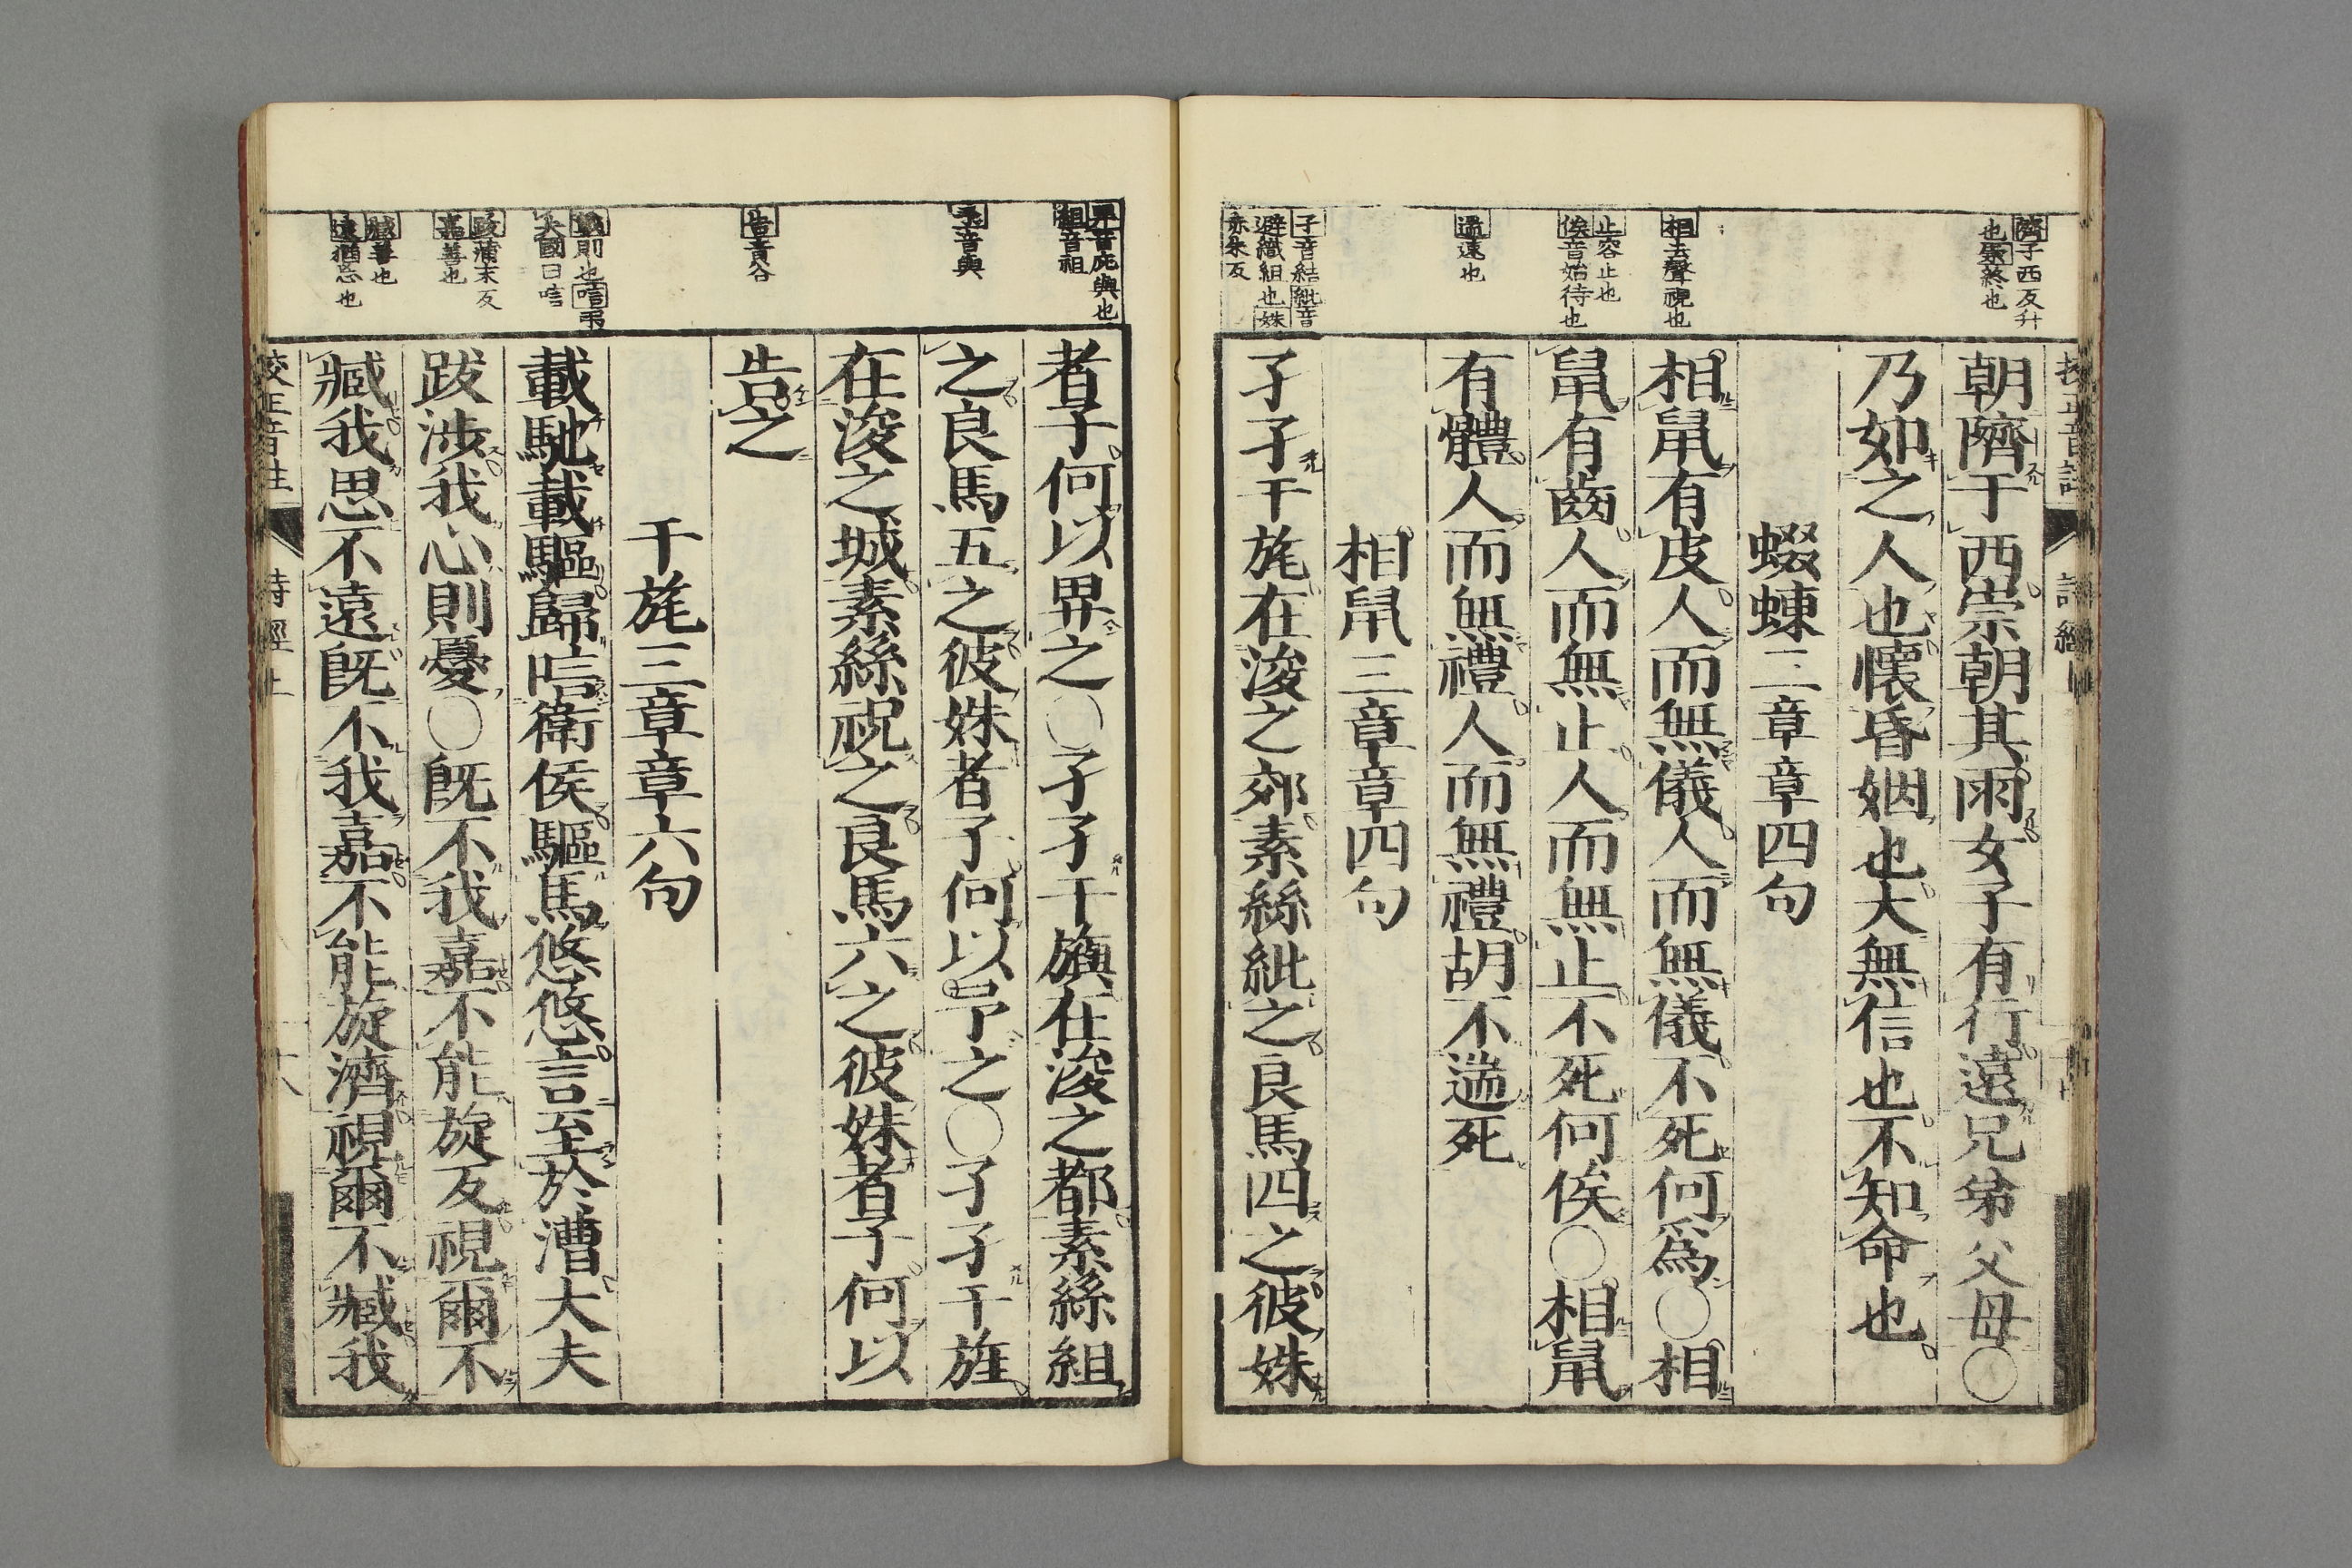 隮子西反升
也崇終也
相去聲視也
止容止也
俟音始待也
遄速也
孑音結紕音
避織組也姝
赤朱反
朝隮于西崇朝其雨女子有行遠兄弟父母〇
乃如之人也懷昏姻也大無信也不知命也
蝃蝀三章章四句
相鼠有皮人而無儀人而無儀不死何爲〇相
鼠有齒人而無止人而無止不死何俟〇相鼠
有體人而無禮人而無禮胡不遄死
相鼠三章章四句
孑孑干旄在浚之郊素絲紕之良馬四之彼姝
畀音庇與也
組音祖
予音與
告音谷
則也唁弔
失國曰唁
跋蒲末反
嘉善也
臧善也
遠猶忘也
者子何以畀之〇孑孑干旟在浚之都素絲組
之良馬五之彼姝者子何以予之〇孑孑干旌
在浚之城素絲祝之良馬六之彼姝者子何以
告之
干旄三章章六句
載馳載驅歸唁衛侯驅馬悠悠言至於漕大夫
跋涉我心則憂〇旣不我嘉不能旋反視爾不
臧我思不遠旣不我嘉不能旋濟視爾不臧我
校正音註 詩經上